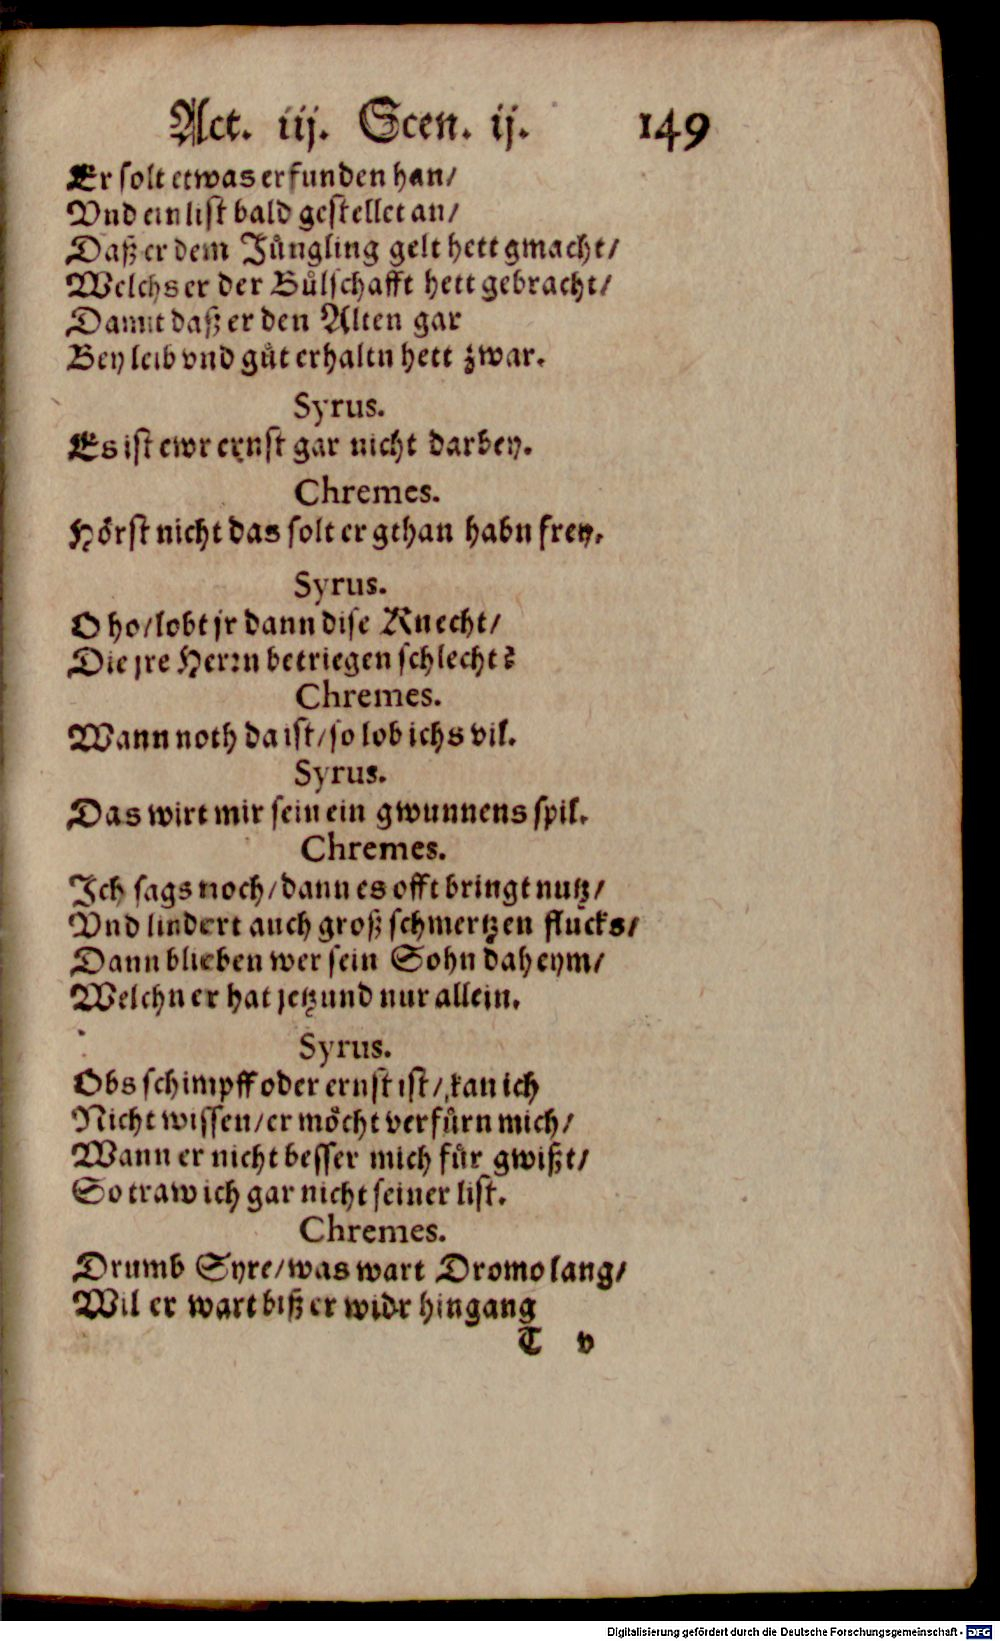 Act. iij. Scen. ij. 149
Er solt etwas erfunden han/
Vnd ein list bald gestellet an/
Daß er dem Jüngling gelt hett gmacht/
Welchs er der Bůlschafft hett gebracht/
Damit daß er den Alten gar
Bey leib vnd gůt erhaltn hett zwar.
Syrus.
Es ist ewr ernst gar nicht darbey.
Chremes.
Hörst nicht das solt er gthan habn frey.
Syrus.
O ho/lobt jr dann dise Knecht/
Die jre Herrn betriegen schlecht?
Chremes.
Wann noth da ist/so lob ichs vil.
Syrus.
Das wirt mir sein ein gwunnens spil.
Chremes.
Ich sags noch/dann es offt bringt nutz/
Vnd lindert auch groß schmertzen flucks/
Dann blieben wer sein Sohn daheym/
Welchn er hat jetzund nur allein.
Syrus.
Obs schimpff oder ernst ist/kan ich
Nicht wissen/er möcht verfürn mich/
Wann er nicht besser mich für gwißt/
So traw ich gar nicht seiner list.
Chremes.
Drumb Syre/was wart Dromo lang/
Wil er wart biß er widr hingang
T v
Digitalisierung gefördert durch die Deutsche Forschungsgemeinschaft - DFG